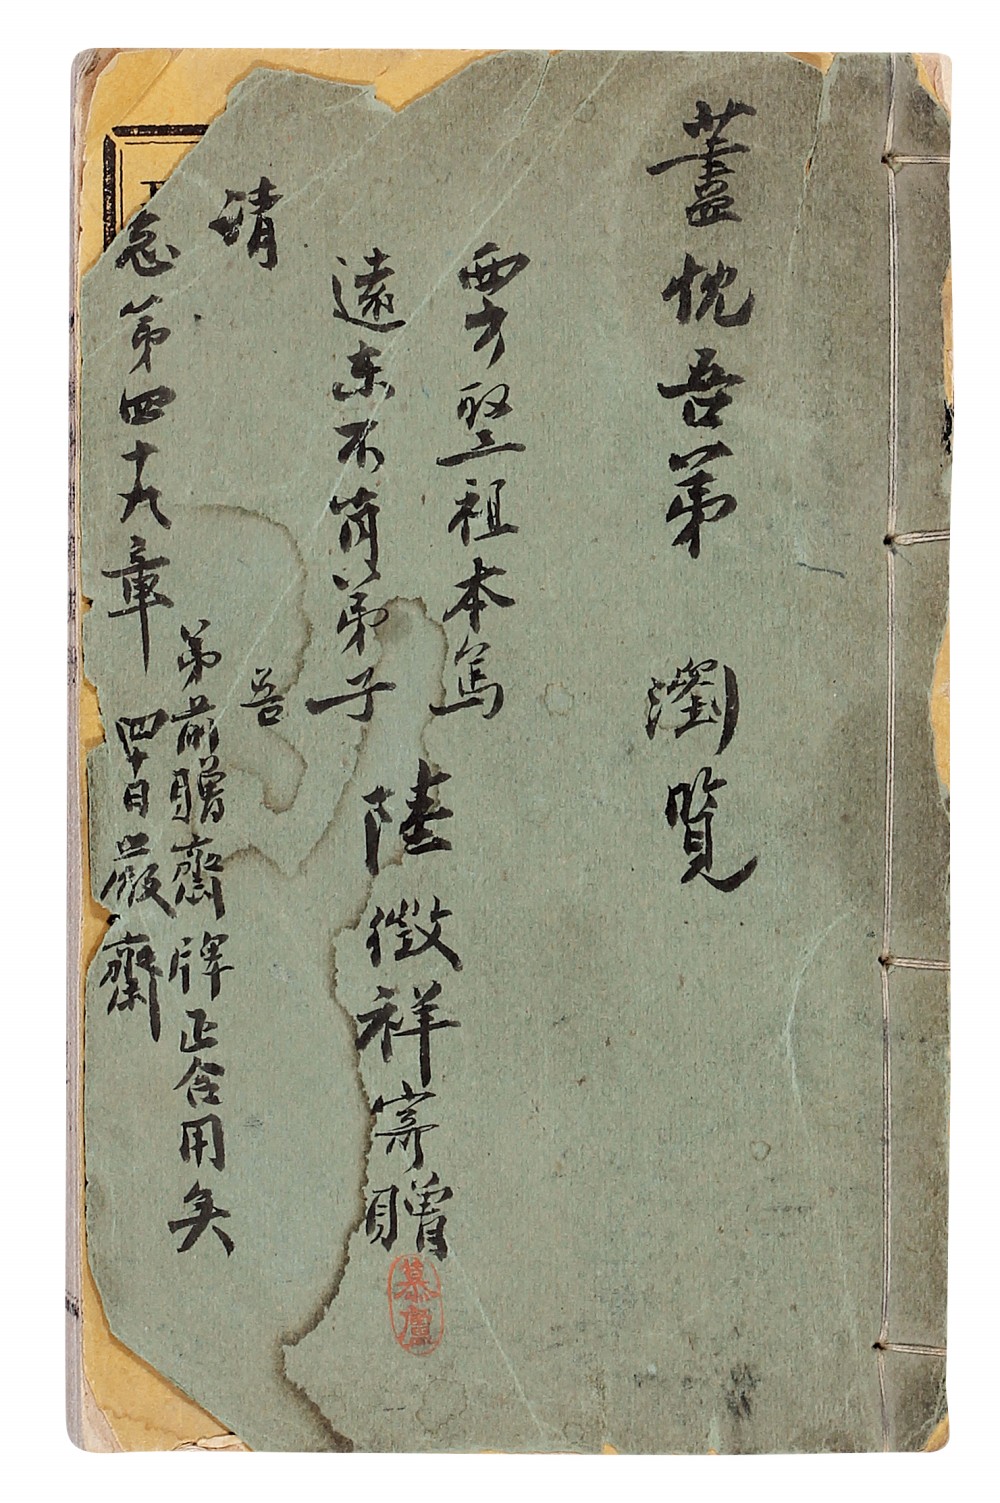 藎忱吾弟 瀏覽
西方聖祖本篤
遠東不肖弟子 陸徵祥寄贈
慕廬
請
吾
弟前贈齋牌正合用矣
念第四十九章 四十日嚴齋